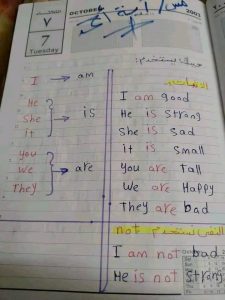 OCTOBER
2003
٧
7
Tuesday
الثلاثاء
I → am
He
She
it
is
you
we
They
are
I am good
He is strong
She is sad
it is small
you are tall
we are Happy
They are bad
not
I am not bad
He is not strong